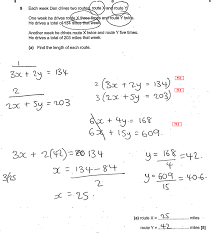 9 Each week Dan drives two routes, route X and route Y.
One week he drives route X three times and route Y twice.
He drives a total of 134 miles that week.
Another week he drives route X twice and route Y five times.
He drives a total of 203 miles that week.
(a) Find the length of each route.
1
3x + 2y = 134
2
2x + 5y = 203
2 (3x + 2y = 134)
3 (2x + 5y = 203)
6x + 4y = 168
6x + 15y = 609
3x + 2(42) = 134
x = 134 - 84
2
x = 25
y = 168
4
= 42.
y = 609
15
= 40.6
(a) route X = 25 miles
route Y = 42 miles [5]